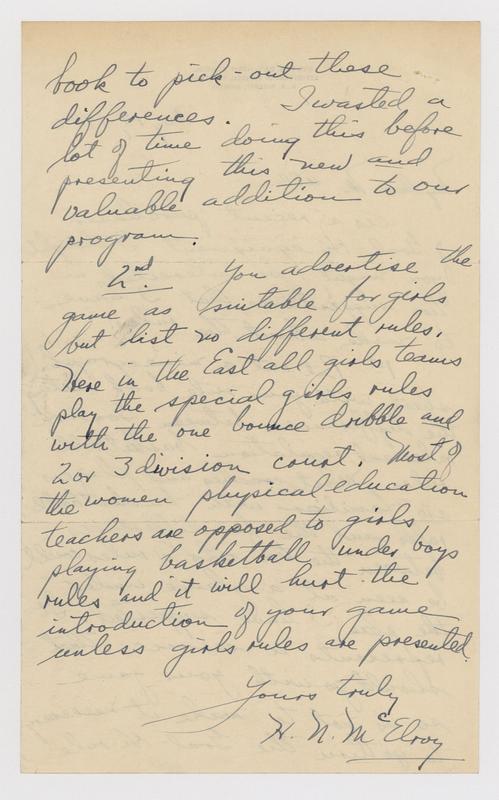 book to pick-out these
differences. I wasted a
lot of time doing this before
presenting this new and
valuable addition to our
program.
2nd. You advertise the
game as suitable for girls
but list no different rules.
Here in the East all girls teams
play the special girls rules
with the one bounce dribble and
2 or 3 division court. Most of
the women physical education
teachers are opposed to girls
playing basketball under boys
rules and it will hurt the
introduction of your game
unless girls rules are presented.
Yours truly
H. N. McElroy